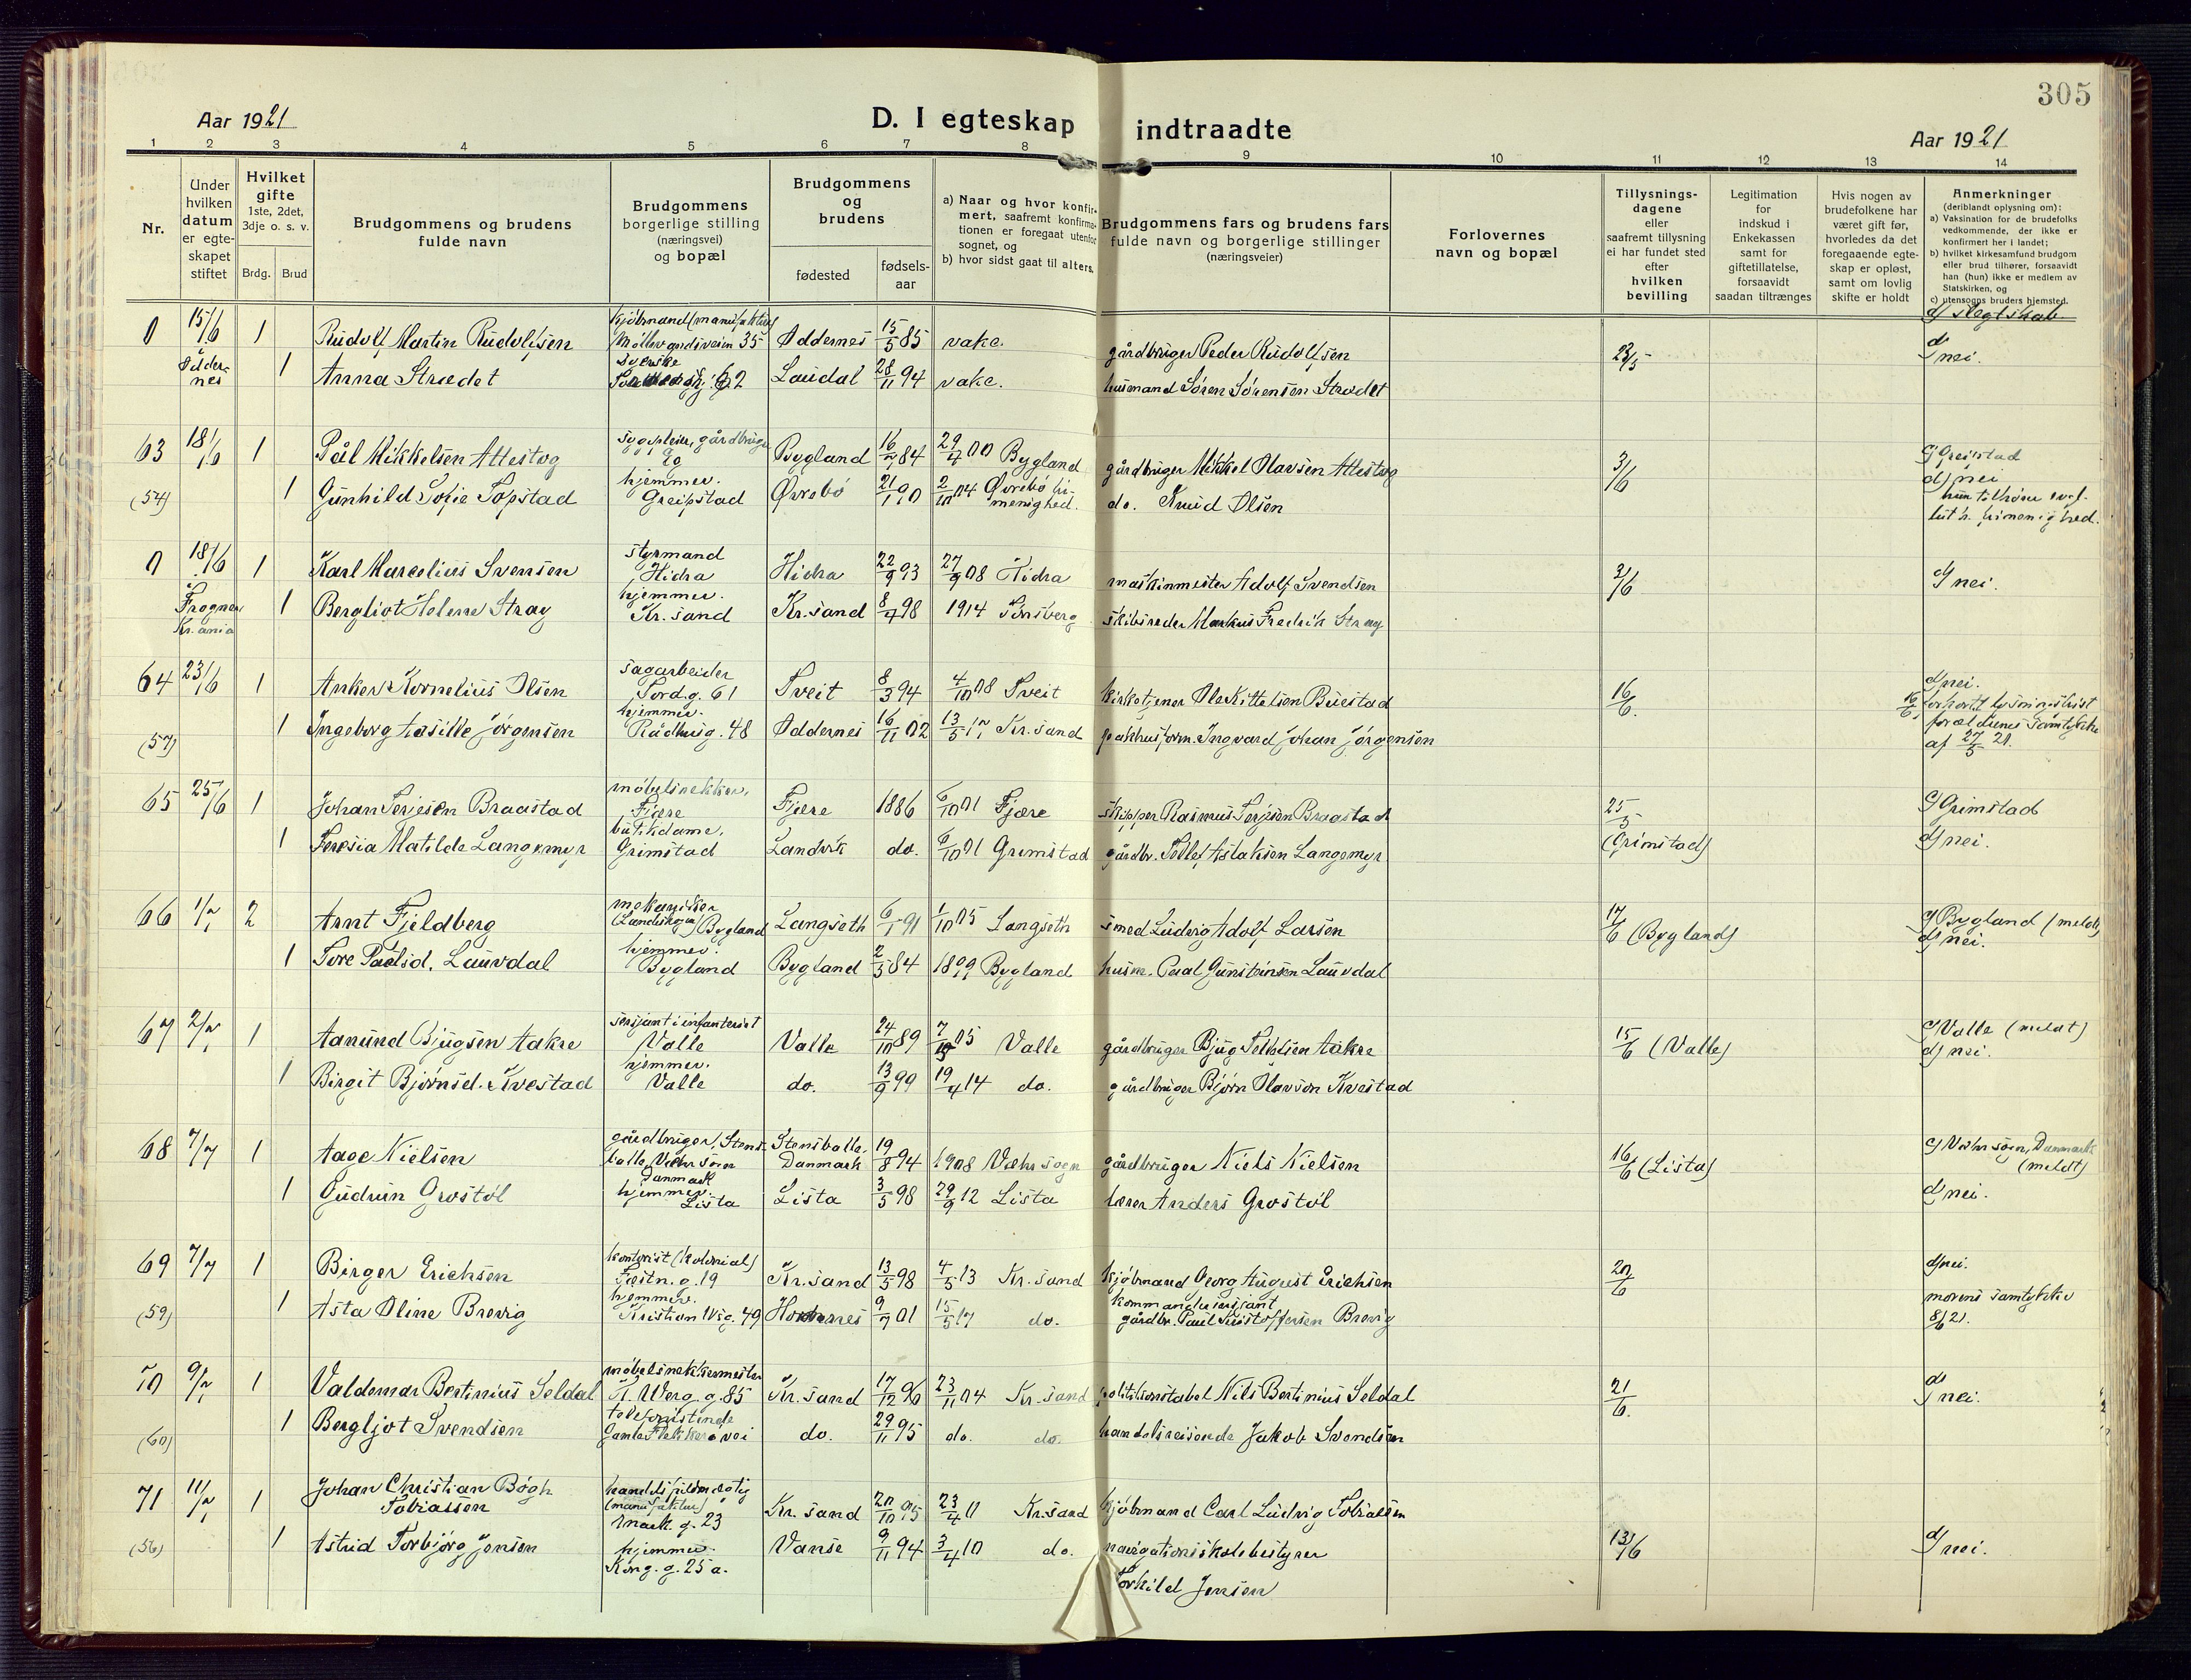 305
Aar 1921
D. I egteskap indtraadte
Aar 1921
1 2 3 4 5 6 7 8 9 10 11 12 13 14
Nr.
Under hvilken datum er egteskapet stiftet
Hvilket gifte
1ste, 2det, 3dje o. s. v.
Brdg. Brud
Brudgommens og brudens fulde navn
Brudgommens borgerlige stilling (næringsvei) og bopæl
Brudgommens og brudens
fødested
fødsels-aar
a) Naar og hvor konfirmert, saafremt konfirmationen er foregaat utenfor sognet, og
b) hvor sidst gaat til alters.
Brudgommens fars og brudens fars fulde navn og borgerlige stillinger (næringsveier)
Forlovernes navn og bopæl
Tillysningsdagene eller saafremt tillysning ei har fundet sted efter hvilken bevilling
Legitimation for indskud i Enkekassen samt for giftetillatelse, forsaavidt saadan tiltrænges
Hvis nogen av brudefolkene har været gift før, hvorledes da det foregaaende egteskap er opløst, samt om lovlig skifte er holdt
Anmerkninger
(deriblandt oplysning om):
a) Vaksination for de brudefolks vedkommende, der ikke er konfirmert her i landet;
b) hvilket kirkesamfund brudgom eller brud tilhører, forsaavidt han (hun) ikke er medlem av Statskirken, og
c) utensogns bruders hjemsted.
d) slegtskab.
0 15/6 1 Rudolf Martin Rudolfsen kjøbmand (manufaktur) Møllevandsveien 35 Oddernes 15/5 85 vake. gårdbruger Peder Rudolfsen 23/5 d) nei.
Oddernes 1 Anna Strædet syerske Laudal 28/11 94 vake. husmand Søren Sørensen Strædet
63 18/6 1 Pål Mikkelsen Attestog sygepleier, gårdbruger Bygland 16/7 84 29/4 00 Bygland gårdbruger Mikkel Olavsen Attestog 3/6 c) Greipstad
d) nei
(54) 1 Gunhild Sofie Topstad hjemmev. Greipstad Øvrebø 21/1 90 2/10 04 Øvrebø frimenighed. do. Knud Olsen hun tilhører evg.-luth. frimenighed.
0 18/6 1 Karl Marcelius Svensen styrmand Hidra Hidra 22/9 93 27/9 08 Hidra maskinmester Adolf Svendsen 3/6 d) nei.
Frogner Kr.ania 1 Bergliot Helene Stray hjemmev. Kr.sand Kr.sand 8/7 98 1914 Tønsberg skibsreder Markus Fredrik Stray
64 23/6 1 Anker Kornelius Olsen sagarbeider Tordg. 61 Tveit 8/3 94 4/10 08 Tveit kirketjener Ole Kittelsen Buestad 16/6. d) nei.
(57) 1 Ingeborg Lasille Jørgensen hjemmev. Rådhusg. 48 Oddernes 16/11 02 13/5 17 Kr.sand pakhusform. Ingvard Johan Jørgensen forkortet lysningsfrist forældrenes samtykke af 27/5 21.
65 25/6 1 Johan Terjesen Braastad møbelsnekker, Fjære Fjære 1886 6/10 01 Fjære skipper Rasmus Terjesen Braastad 25/5 (Grimstad) c) Grimstad
1 Teresia Matilde Langemyr butikdame, Grimstad Landvik do. 6/10 01 Grimstad gårdbr. Tellef Aslaksen Langemyr d) nei.
66 1/7 2 Arnt Fjeldberg mekaniker Bygland Langseth 6/1 91 1/10 05 Langseth smed Ludvig Adolf Larsen 17/6 (Bygland) c) Bygland (meldt)
d) nei.
1 Tore Paalsd. Lauvdal hjemmev. Bygland Bygland 2/5 84 1899 Bygland husm. Paal Gunsteinsen Lauvdal
67 2/7 1 Aanund Bjugsen Aakre sersjant i infanteriet Valle Valle 24/10 89 7/10 05 Valle gårdbruger Bjug Tellefsen Aakre 15/6 (Valle) c) Valle (meldt)
d) nei.
1 Birgit Bjørnsd. Kvestad hjemmev. Valle do. 13/9 99 19/4 14 do. gårdbruger Bjørn Olavson Kvestad
68 7/7 1 Aage Nielsen gårdbruger, Stensballe, Væhr sogn Danmark Stensballe, Danmark 19/8 94 1908 Væhr sogn gårdbruger Niels Nielsen 16/6 (Lista) c) Væhr sogn, Danmark (meldt)
1 Gudrun Grostøl hjemmev. Lista Lista 3/5 98 29/9 12 Lista lærer Anders Grostøl d) nei.
69 7/7 1 Birger Erichsen kontorist (kolonial) Fæstn.g. 19 Kr.sand 13/5 98 4/5 13 Kr.sand kjøbmand Georg August Erichsen 20/6 d) nei.
(59) 1 Asta Oline Brevig hjemmev. Kristian IVsg. 49 9/7 01 15/5 17 do. kommandersersjant gårdbr. Paul Kristoffersen Brevig morens samtykke 8/6 21.
70 9/7 1 Valdemar Bertinius Seldal møbelsnekkermester H. Werg. g. 85 Kr.sand 17/12 90 23/11 04 Kr.sand politikonstabel Nils Bertinius Seldal 21/6. d) nei.
(60) 1 Bergljot Svendsen telefonistinde Gamle Flekkerøvei do. 29/11 95 do. do. handelsreisende Jakob Svendsen
71 11/7 1 Johan Christian Bøgh Tobiassen handelsfuldmægtig (manufaktur) Mark. g. 23 Kr.sand 20/10 95 23/4 11 Kr.sand kjøbmand Carl Ludvig Tobiassen
(56) 1 Astrid Torbjørg Jensen hjemmev. Kong. g. 25 a. Vanse 9/11 94 3/4 10 do. navigationsskolebestyrer Torkild Jensen 13/6 d) nei.